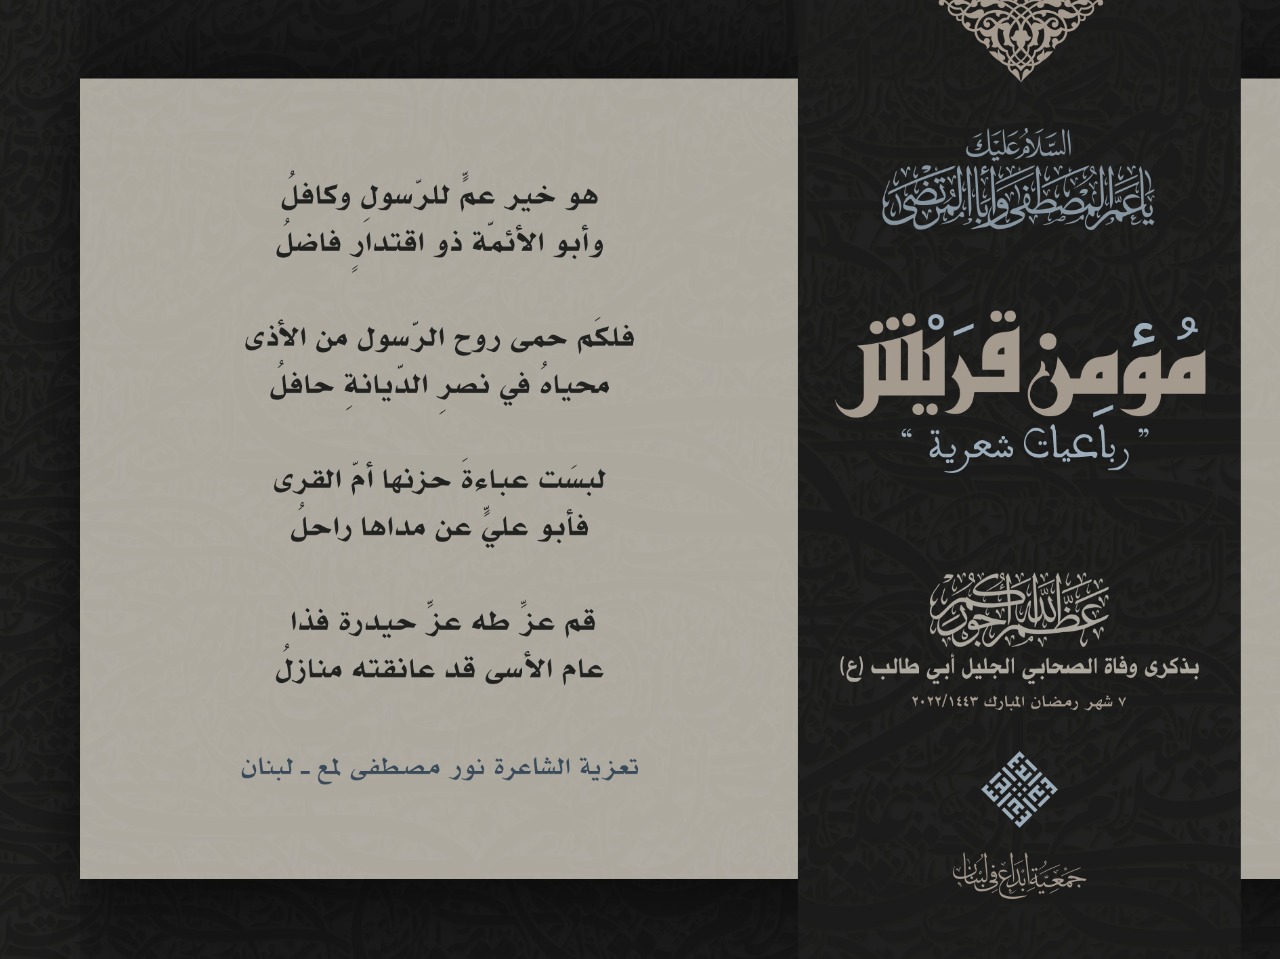 السَّلَامُ عَلَيْكَ
يَا عَمَّ الْمُصْطَفَى وَأَبَا الْمُرْتَضَى
مُؤمِن قَريْش
” رباعيات شعرية “
عَظَّمَ اللهُ أُجُورَكُمْ
بذكرى وفاة الصحابي الجليل أبي طالب (ع)
٧ شهر رمضان المبارك ٢٠٢٢/١٤٤٣
جَمْعِيَّة إبْدَاع في لُبْنَان
هو خير عمٍّ للرّسولِ وكافلُ
وأبو الأئمّة ذو اقتدارٍ فاضلُ
فلكَم حمى روح الرّسول من الأذى
محياهُ في نصرِ الدّيانةِ حافلُ
لبسَت عباءةَ حزنها أمّ القرى
فأبو عليٍّ عن مداها راحلُ
قم عزِّ طه عزِّ حيدرة فذا
عام الأسى قد عانقته منازلُ
تعزية الشاعرة نور مصطفى لمع ـ لبنان